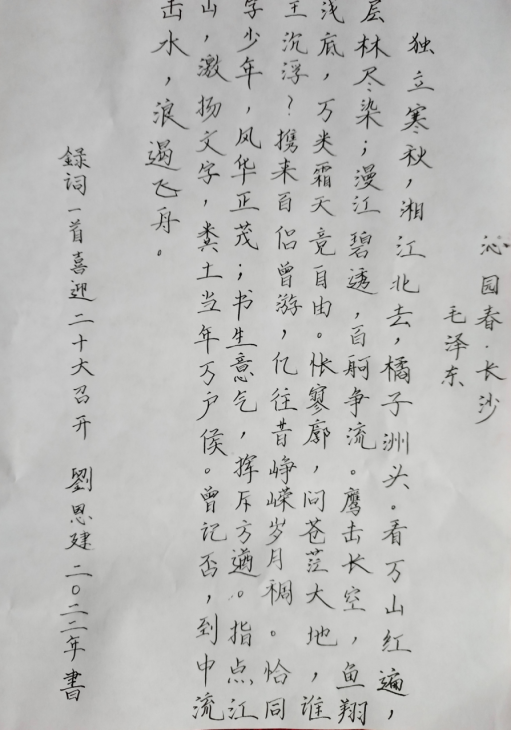 沁园春·长沙
毛泽东
独立寒秋,湘江北去,橘子洲头。看万山红遍,
层林尽染;漫江碧透,百舸争流。鹰击长空,鱼翔
浅底,万类霜天竞自由。怅寥廓,问苍茫大地,谁
主沉浮?携来百侣曾游,忆往昔峥嵘岁月稠。恰同
学少年,风华正茂;书生意气,挥斥方遒。指点江
山,激扬文字,粪土当年万户侯。曾记否,到中流
击水,浪遏飞舟。
錄词一首喜迎二十大召开 劉恩建二〇二二年書